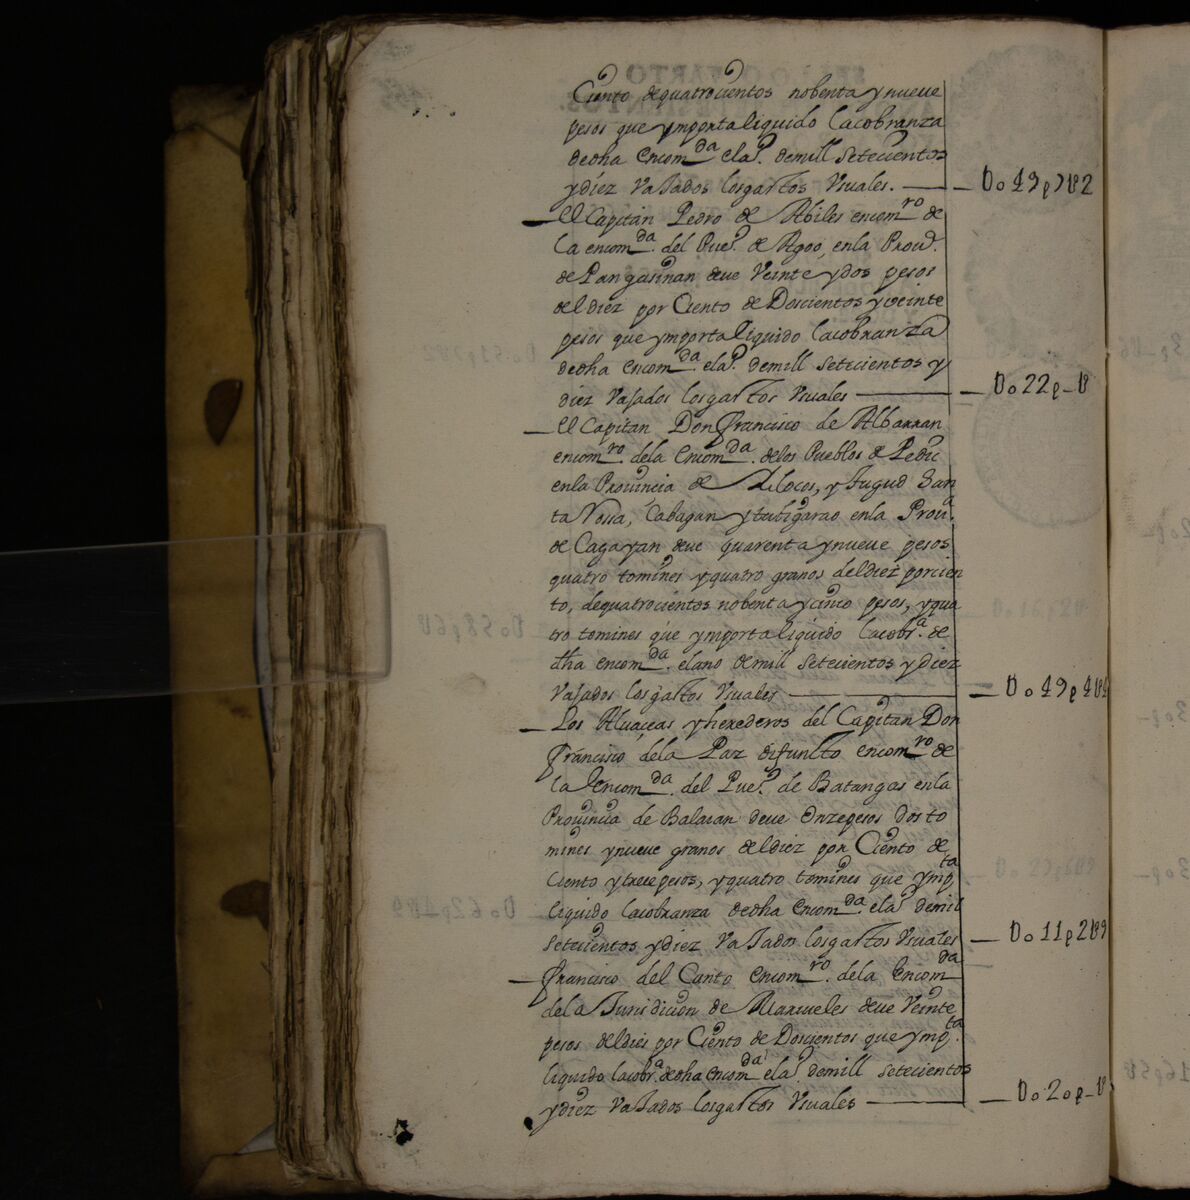 Ciento de quatrocientos nobenta y nueve
pesos que ymporta liquido la cobranza
de dha encom.da el a.o de mill setecientos
y diez vajados los gastos Vsuales. — U049p7U2
El Capitan Pedro de Abiles encom.ro de
la encom.da del Pue.o de Agoo, en la Prou.a
de Pangasinan deue Veinte y dos pesos
del diez por Ciento de Doscientos y veinte
pesos que ymporta liquido la cobranza
de dha encom.da el a.o de mill setecientos y
diez vajados los gastos Vsuales — U022p-U
El Capitan Don Francisco de Albarran
encom.ro de la Encom.da de los Pueblos de
en la Prouincia de Ylocos, y Yugud San
ta Rossa, Cabagan y tubigarao en la Prou.a
de Cagayan deue quarenta y nueve pesos
quatro tomines y quatro granos del diez por cien
to, de quatrocientos nobenta y cinco pesos, y qua
tro tomines que ymporta liquido la cobr.a de
dha encom.da el ano de mill setecientos y diez
vajados los gastos Vsuales — U049p4U4
Los Aluaceas y herederos del Capitan Don
Francisco de la Paz difunto encom.ro de
la Encom.da del Pue.o de Batangas en la
Prouincia de Balaian deue Onze pesos dos to
mines y nueve granos del diez por Ciento de
Ciento y trece pesos, y quatro tomines que ymp.ta
liquido la cobranza de dha encom.da el a.o de mil
setecientos y diez vajados los gastos Vsuales — U011p2U9
Francisco del Canto encom.ro de la Encom.da
de la Juridicion de Mariueles deue Veinte
pesos del dies por Ciento de Doscientos que ymp.ta
liquido la cobr.a de dha encom.da el a.o de mill setecientos
y diez vajados los gastos Vsuales — U020p-U